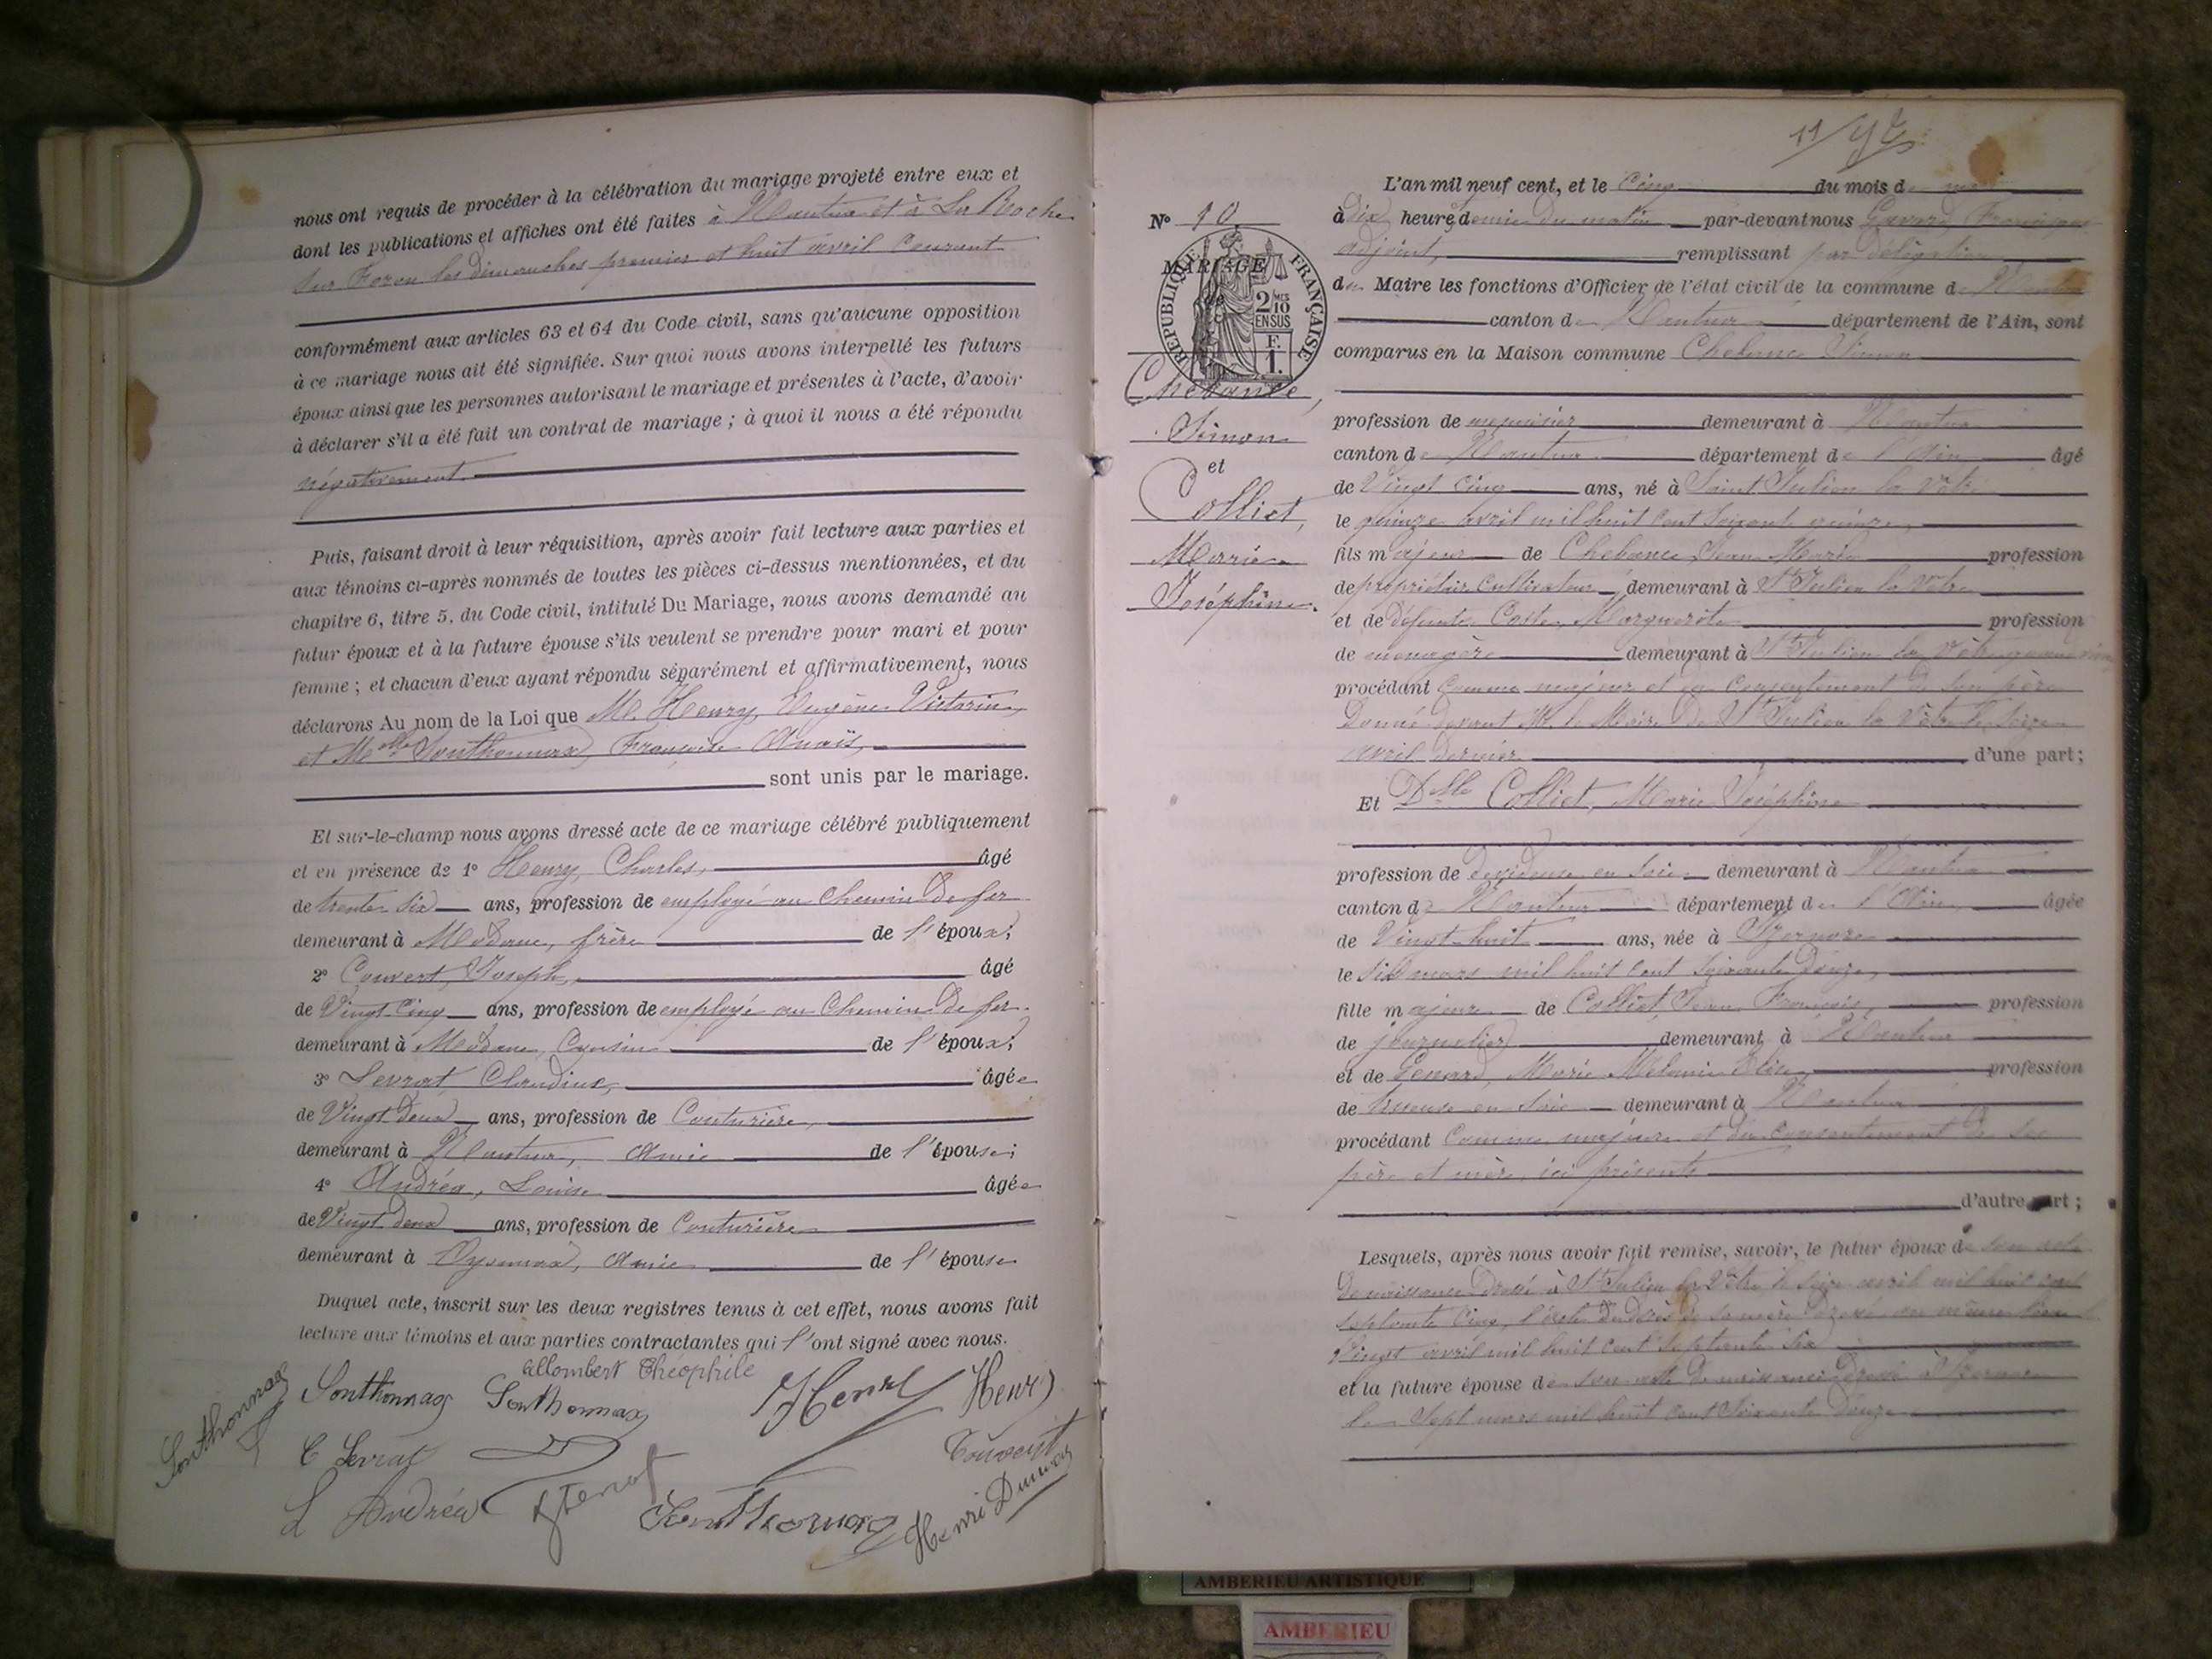 nous ont requis de procéder à la célébration du mariage projeté entre eux et
dont les publications et affiches ont été faites à Nantua et à La Roche
sur Foron les dimanches premier et huit avril courant
conformément aux articles 63 et 64 du Code civil, sans qu'aucune opposition
à ce mariage nous ait été signifiée. Sur quoi nous avons interpellé les futurs
époux ainsi que les personnes autorisant le mariage et présentes à l'acte, d'avoir
à déclarer s'il a été fait un contrat de mariage ; à quoi il nous a été répondu
négativement.
Puis, faisant droit à leur réquisition, après avoir fait lecture aux parties et
aux témoins ci-après nommés de toutes les pièces ci-dessus mentionnées, et du
chapitre 6, titre 5, du Code civil, intitulé Du Mariage, nous avons demandé au
futur époux et à la future épouse s'ils veulent se prendre pour mari et pour
femme ; et chacun d'eux ayant répondu séparément et affirmativement, nous
déclarons Au nom de la Loi que M. Henry, Eugène Victorin,
et Melle Sonthonnax, Françoise Anaïs,
sont unis par le mariage.
Et sur-le-champ nous avons dressé acte de ce mariage célébré publiquement
et en présence de 1° Henry, Charles, âgé
de trente six ans, profession de employé au Chemin de fer
demeurant à Modane, frère de l'époux;
2° Couvert, Joseph, âgé
de Vingt Cinq ans, profession de employé au Chemin de fer.
demeurant à Modane, Cousin de l'époux;
3° Levrat Claudine, âgée
de Vingt deux ans, profession de Couturière,
demeurant à Nantua, Amie de l'épouse;
4° Andréa, Louise âgée
de Vingt deux ans, profession de Couturière
demeurant à Oyonnax, Amie de l'épouse
Duquel acte, inscrit sur les deux registres tenus à cet effet, nous avons fait
lecture aux témoins et aux parties contractantes qui l'ont signé avec nous.
allombert Théophile
Sonthonnax Sonthonnax Sonthonnax Henry Henry
C Levrat Couvert
L Andréa Sonthonnax Henri Dumas
11
N° 10
MARIAGE
RÉPUBLIQUE FRANÇAISE
2/10 MES
EN SUS
F.
1.
Chebance,
Simon
et
Colliet,
Marie
Joséphine.
L'an mil neuf cent, et le Cinq du mois de mai
à dix heures demie du matin par-devant nous Gavard François
adjoint, remplissant par délégation
du Maire les fonctions d'Officier de l'état civil de la commune de Nantua
canton de Nantua département de l'Ain, sont
comparus en la Maison commune Chebance Simon
profession de menuisier demeurant à Nantua
canton de Nantua département de l'Ain âgé
de Vingt Cinq ans, né à Saint Julien la Vêtre
le quinze avril mil huit cent soixante quinze,
fils majeur de Chebance, Jean Marie profession
de propriétaire cultivateur, demeurant à St Julien la Vêtre
et de défunte Coste, Marguerite profession
de ménagère demeurant à St Julien la Vêtre
procédant Comme majeur et du Consentement de son père
Donné devant M. le Maire de St Julien la Vêtre le seize
avril dernier d'une part;
Et Delle Colliet, Marie Joséphine
profession de dévideuse en soie demeurant à Nantua
canton de Nantua département de l'Ain, âgée
de Vingt-huit ans, née à Izernore
le six mars mil huit cent soixante douze,
fille majeure de Colliet, Jean François, profession
de journalier demeurant à Nantua
et de Marie Mélanie profession
de tisseuse en soie demeurant à Nantua
procédant Comme majeure et du consentement de ses
père et mère, ici présents
d'autre part;
Lesquels, après nous avoir fait remise, savoir, le futur époux de son acte
de naissance dressé à St Julien la Vêtre le seize avril mil huit cent
septante cinq, l'acte de décès de sa mère dressé au même lieu le
Vingt avril mil huit cent septante six
et la future épouse de son acte de naissance dressé à Izernore
le sept mars mil huit cent soixante douze
AMBERIEU ARTISTIQUE
AMBERIEU